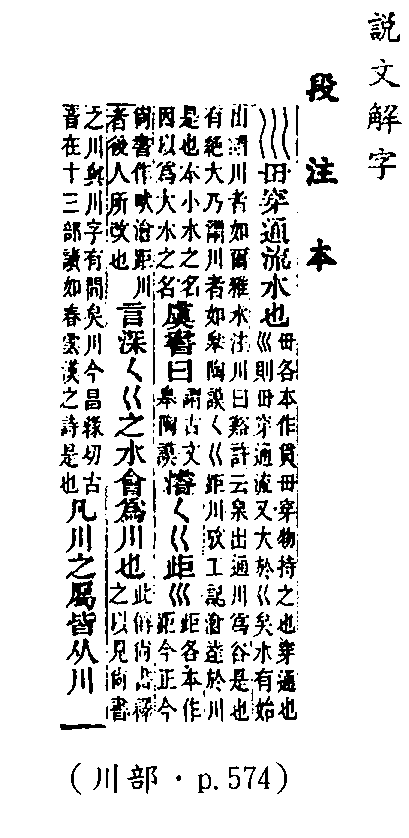 說文解字
段注本
巛毌穿通流水也毌各本作貫毌穿物持之也穿通也巜則毌穿通流又大於巜矣水有始
出謂川者如爾雅水注川曰谿許云泉出通川爲谷是也有絕大乃謂川者如皋陶謨〈巜距川攷工記澮達於川
是也本小水之名因以爲大水之名虞書曰謂古文皋陶謨濬〈巜歫巛歫各本作距今正今
尙書作畎澮距川者後人所改也言深〈巜之水會爲川也此偁尙書釋之以見尙書
之川與川字有閒矣川今昌緣切古音在十三部讀如春雲漢之詩是也凡川之屬皆从川
(川部・p.574)